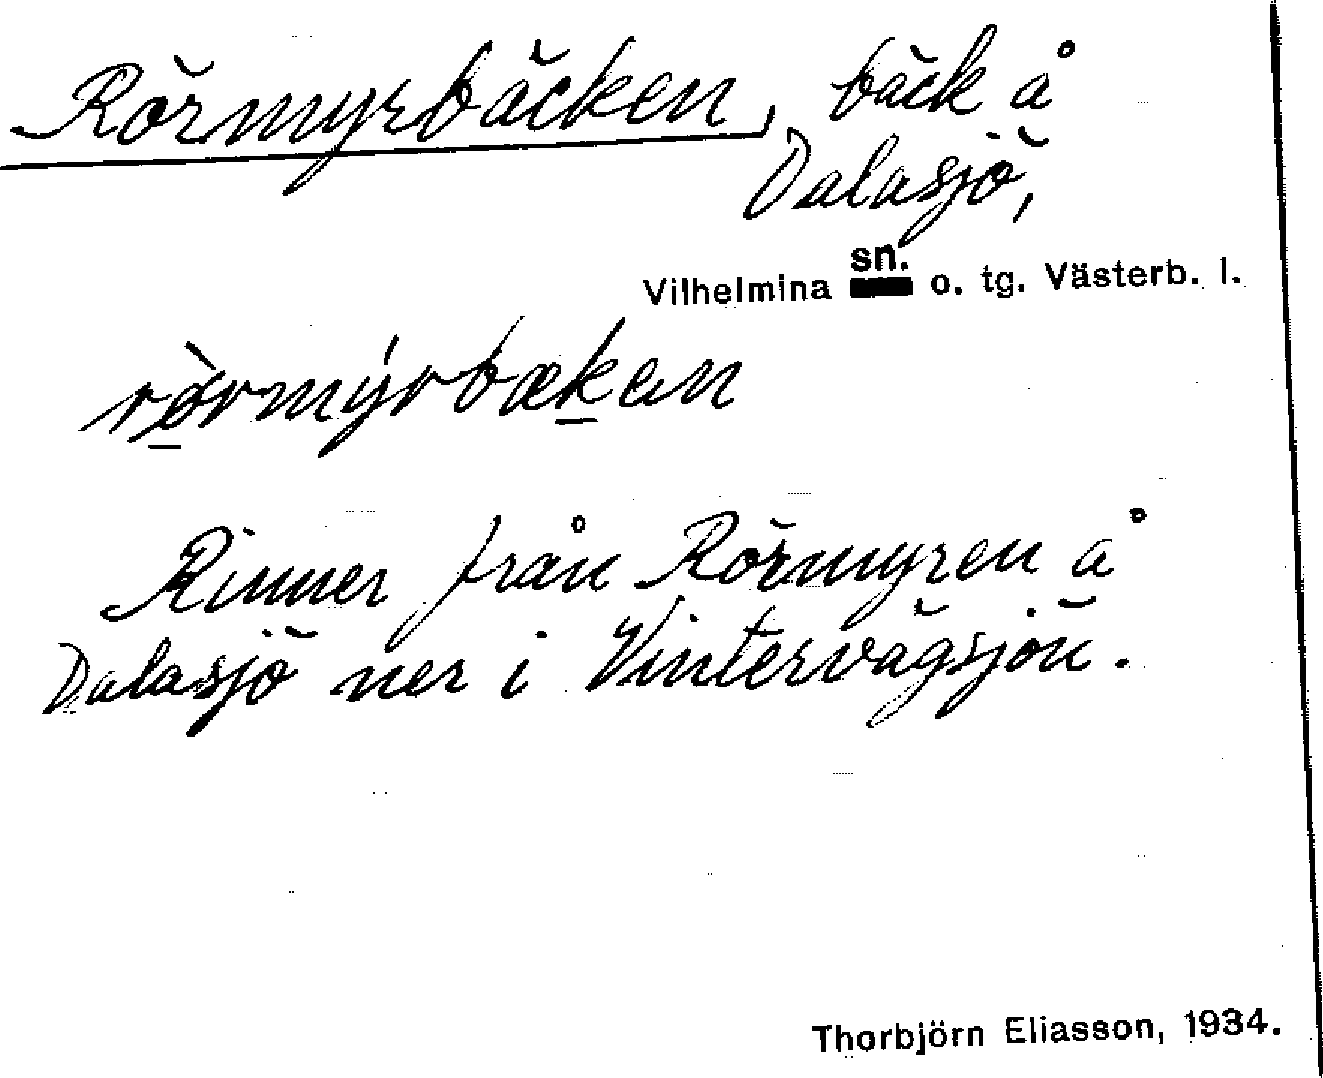 Rörmyrbäcken, bäck å
Dalasjö,
Vilhelmina sn. o. tg. Västerb. l.
rø̀rmýrbæken
Rinner från Rörmyren å
Dalasjö ner i Vintervägsjön.
Thorbjörn Eliasson, 1934.